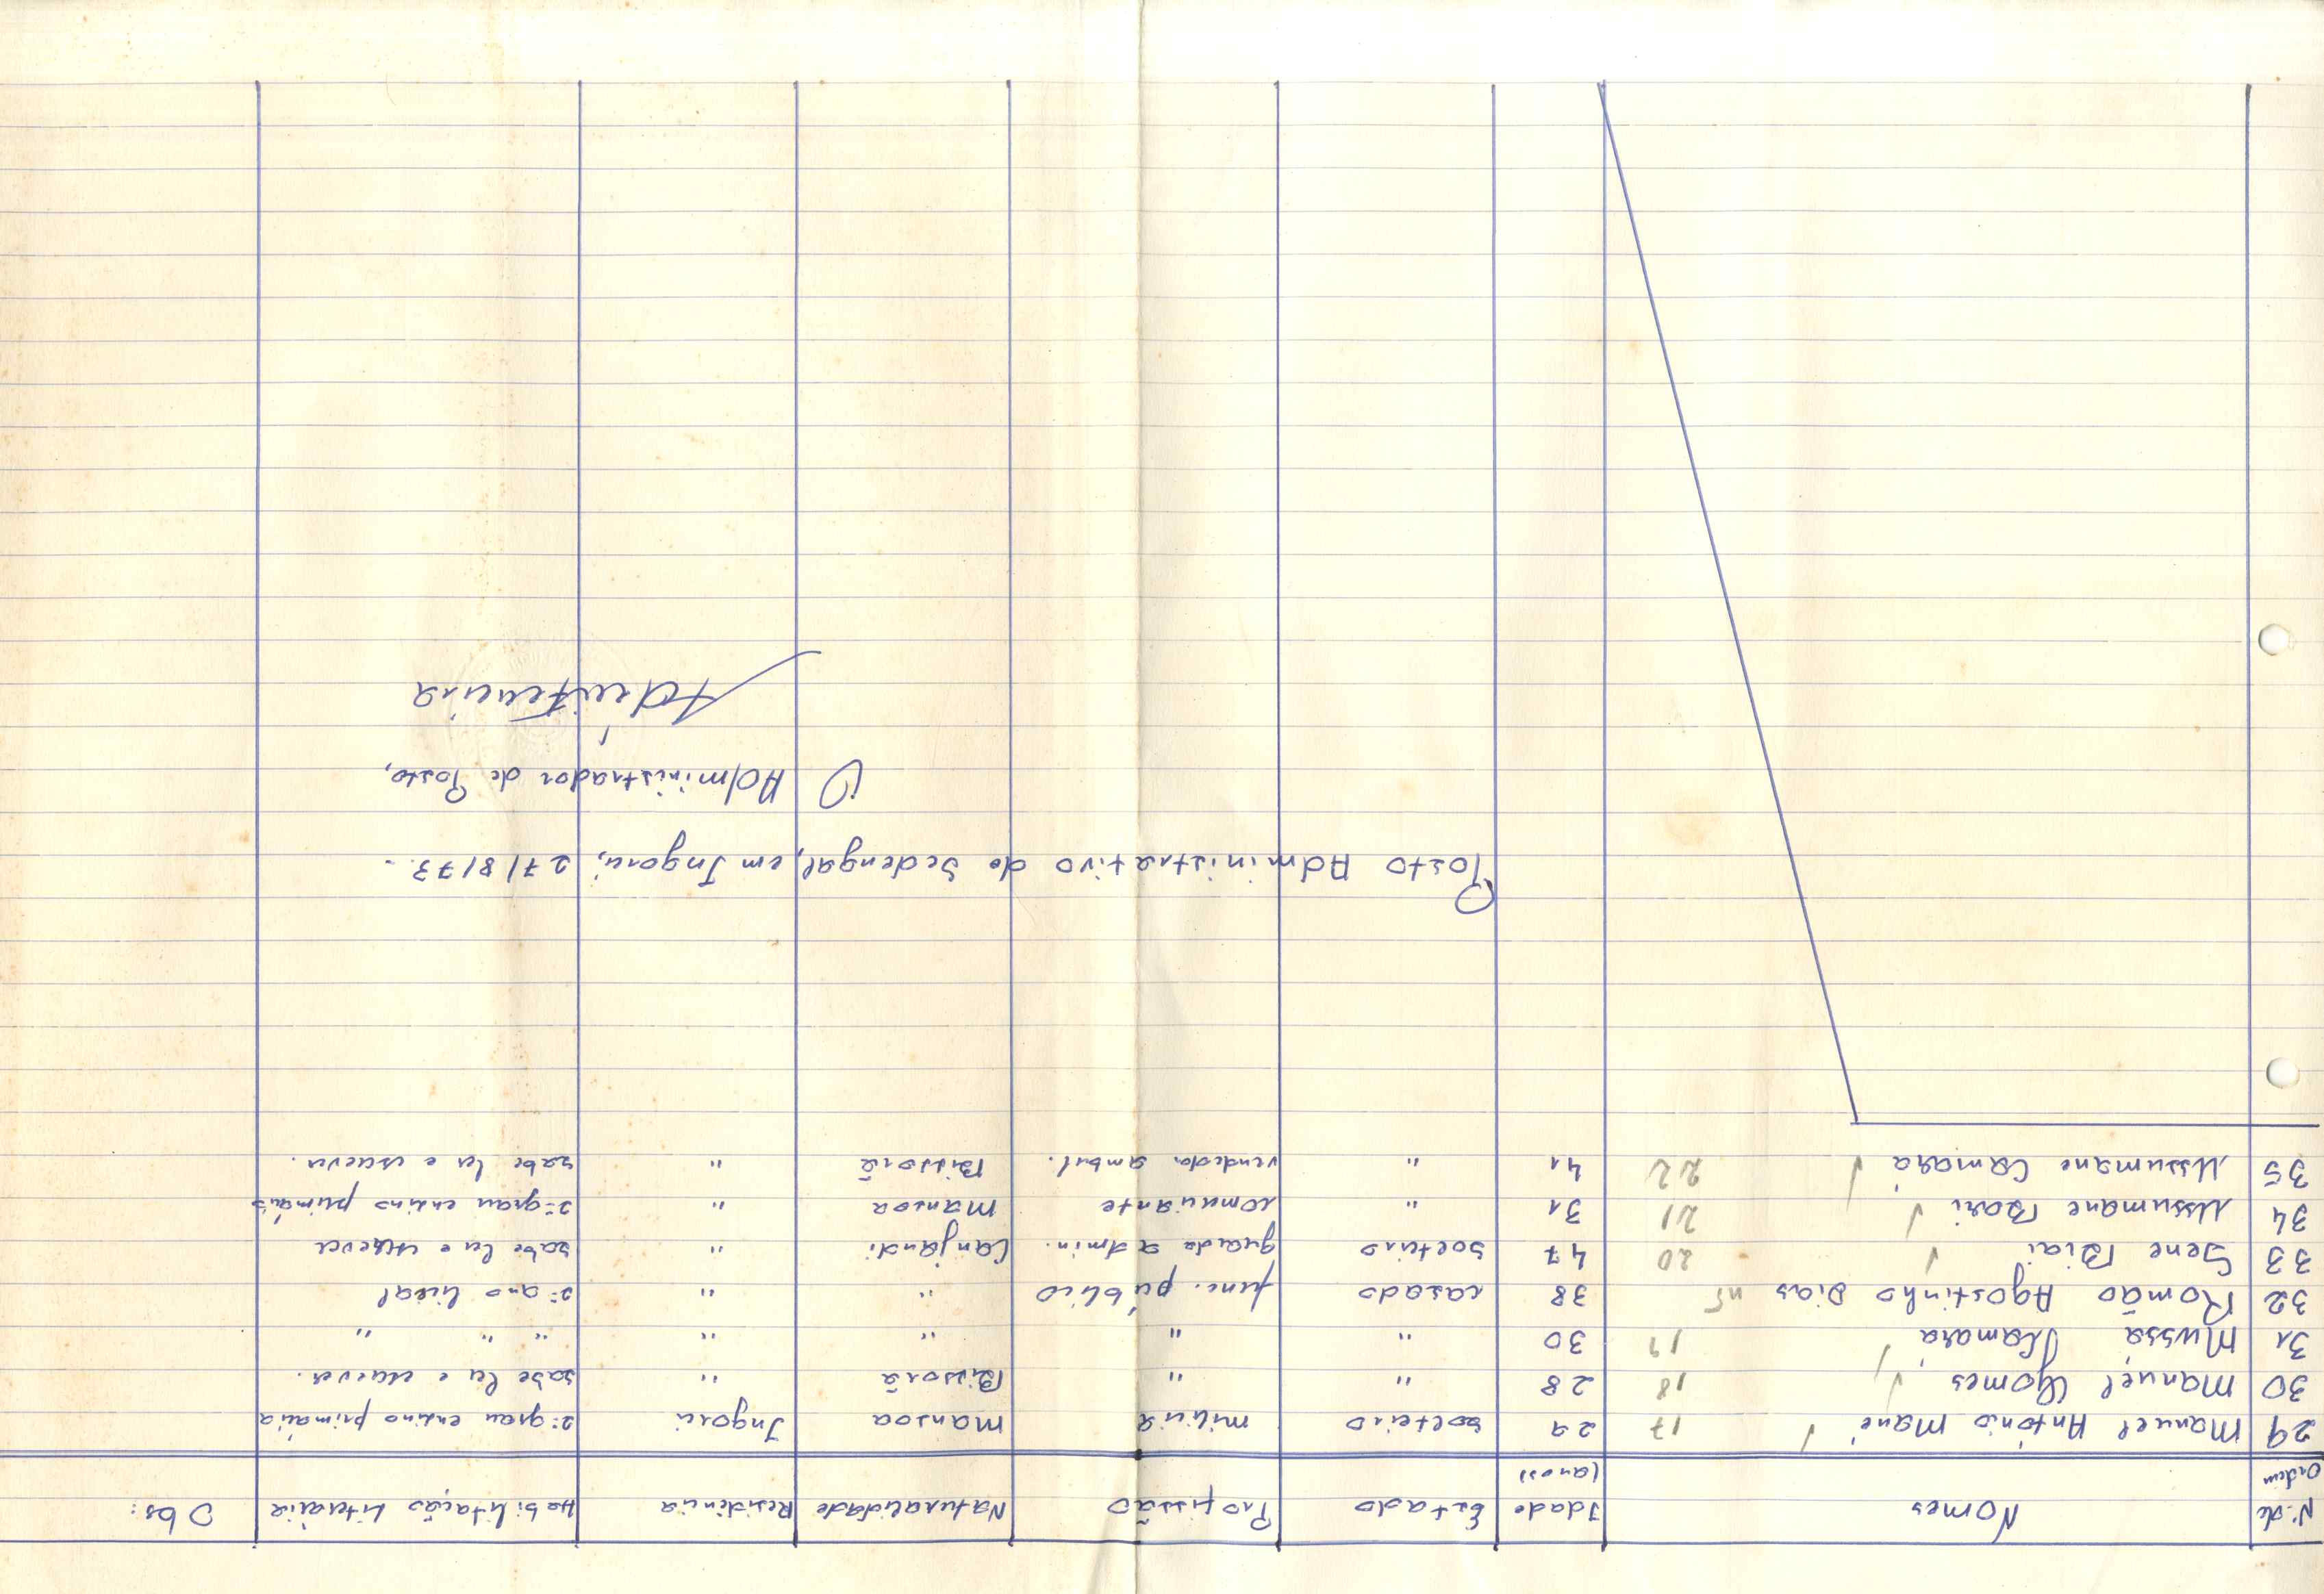 N.º de Ordem Nomes Idade (anos) Estado Profissão Naturalidade Residência Habilitação Literária Obs:
29 Manuel António Mané 17 29 solteiro milícia Mansoa Ingoré 2º grau ensino primária
30 Manuel Gomes 18 28 " " Bissorã " sabe ler e escrever.
31 Mussa Camará 19 30 " " " " " " "
32 Romão Agostinho Dias 38 casado func. público " " 2º ano liceal
33 Sene Biai 20 47 solteiro guarda admin. Canjandi " sabe ler e escrever
34 Ussumane Bari 21 31 " comerciante Mansoa " 2º grau ensino primário
35 Ussumane Camará 22 41 " vendedor ambul. Bissorã " sabe ler e escrever.
Posto Administrativo de Sedengal, em Ingoré, 27/8/73.-
O Administrador de Posto,